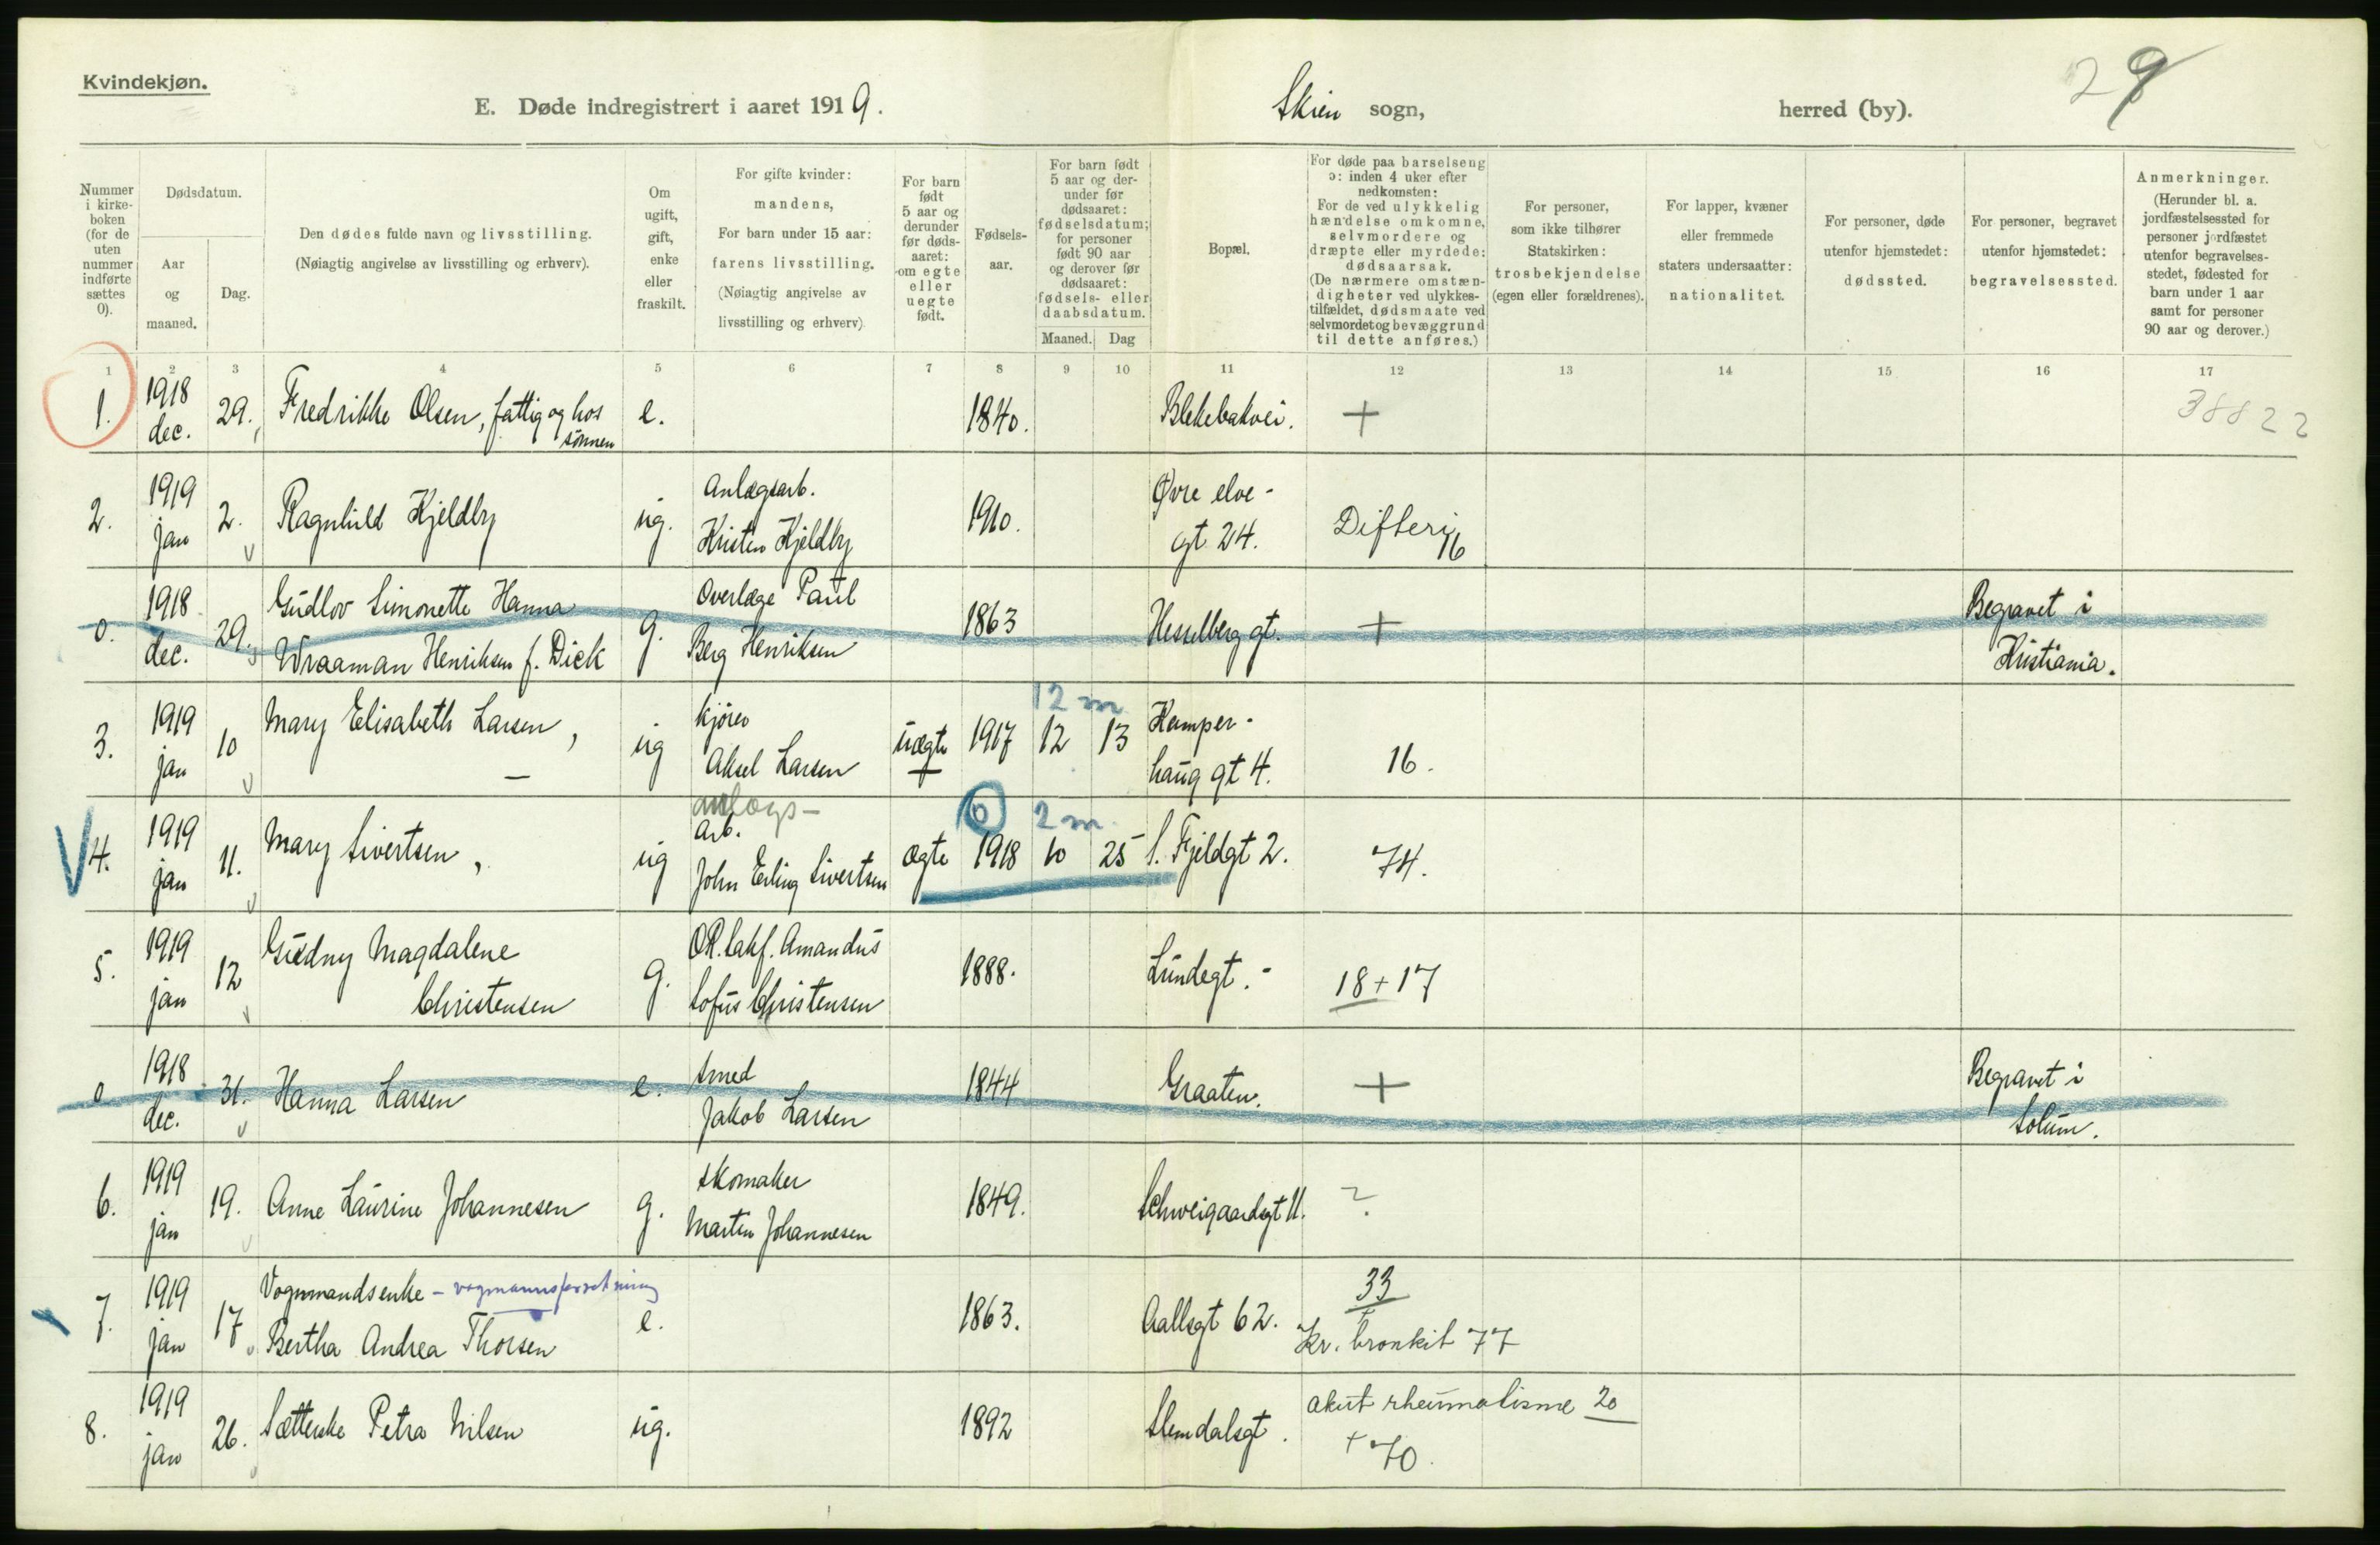 Kvindekjøn.
E. Døde indregistrert i aaret 1919.
Skien sogn,
herred (by).
29
Nummer i kirke-boken (for de uten nummer indførte sættes 0).
Dødsdatum.
Aar og maaned.
Dag.
Den dødes fulde navn og livsstilling.
(Nøiagtig angivelse av livsstilling og erhverv).
Om ugift, gift, enke eller fraskilt.
For gifte kvinder: mandens,
For barn under 15 aar: farens livsstilling.
(Nøiagtig angivelse av livsstilling og erhverv).
For barn født 5 aar og derunder før døds-aaret: om egte eller uegte født.
Fødsels-aar.
For barn født 5 aar og der-under før dødsaaret: fødselsdatum; for personer født 90 aar og derover før dødsaaret: fødsels- eller daabsdatum.
Maaned.
Dag
Bopæl.
For døde paa barselseng ɔ: inden 4 uker efter nedkomsten:
For de ved ulykkelig hændelse omkomne, selvmordere og dræpte eller myrdede: dødsaarsak.
(De nærmere omstæn-digheter ved ulykkes-tilfældet, dødsmaate ved selvmordet og bevæggrund til dette anføres.)
For personer, som ikke tilhører Statskirken: trosbekjendelse (egen eller forældrenes).
For lapper, kvæner eller fremmede staters undersaatter: nationalitet.
For personer, døde utenfor hjemstedet: dødssted.
For personer, begravet utenfor hjemstedet: begravelsessted.
Anmerkninger.
(Herunder bl. a. jordfæstelsessted for personer jordfæstet utenfor begravelses-stedet, fødested for barn under 1 aar samt for personer 90 aar og derover.)
1 2 3 4 5 6 7 8 9 10 11 12 13 14 15 16 17
1. 1918 dec. 29. Fredrikke Olsen, fattig og hos sønnen e. 1840. Blekebakvei. + 38822
2. 1919 jan 2. Ragnhild Kjeldby ug. Anlægsarb. Kristen Kjeldby 1910. Øvre elve-gt. 24. Difteri 16
0. 1918 dec. 29. Gudlov Simonette Hanna Wraaman Henriksen f. Dick g. Overlæge Paul Berg Henriksen 1863 Hesselberg gt. + Begravet i Kristiania.
3. 1919 jan 10 Mary Elisabeth Larsen, — ug kjører Aksel Larsen uægte 1917 12 m 12 13 Kemper-haug gt 4. 16.
4. 1919 jan 11. Mary Sivertsen, ug anlægs- arb. John Erling Sivertsen ægte 0 1918 2 m. 10 25 S. Fjeldgt 2. 74.
5. 1919 jan 12 Gudny Magdalene Christensen g. Amandus Sofus Christensen 1888. Lundegt. - 18+17
0 1918 dec. 31. Hanna Larsen e. Smed Jakob Larsen 1844 Graaten. + Begravet i Solum.
6. 1919 jan 19. Anne Laurine Johannesen g. Skomaker Martin Johannesen 1849. Schweigaardsgt 11. ?
7. 1919 jan 17 Vognmandsenke - vognmannsforretning Bertha Andrea Thorsen e. 1863. Aallsgt 62. 33 + Kr. bronkit 77
8. 1919 jan 26. Sætterske Petra Nilsen ug. 1892 Slemdalsgt. akut rheumatisme 20 + 70.